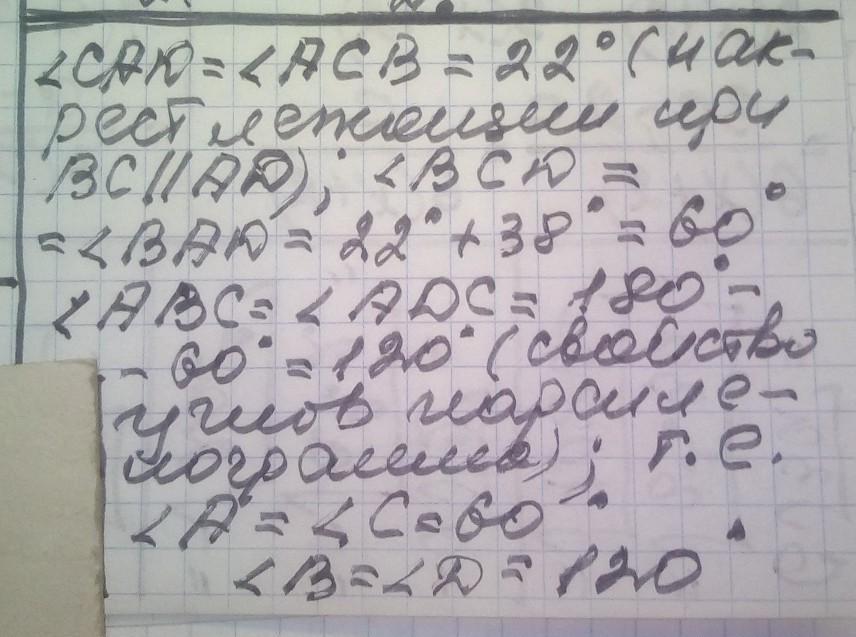 ∠CAD = ∠ACB = 22° (нак-
рест лежащии при
BC||AD); ∠BCD =
= ∠BAD = 22° + 38° = 60°
∠ABC = ∠ADC = 180° -
- 60° = 120° (свойство
углов паралле-
лограмма); т.е.
∠A = ∠C = 60°
∠B = ∠D = 120°